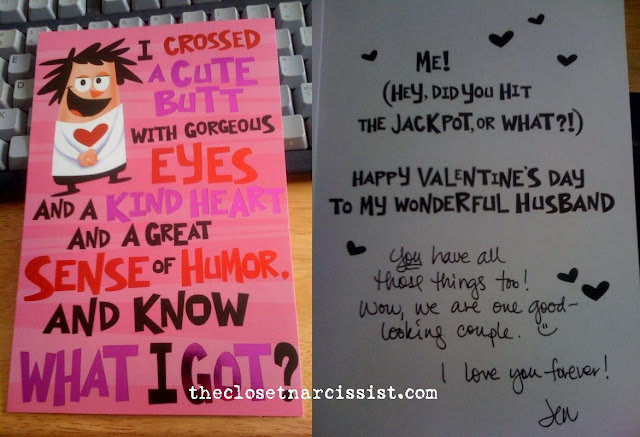 I CROSSED
A CUTE
BUTT
WITH GORGEOUS
EYES
AND A KIND HEART
AND A GREAT
SENSE OF HUMOR,
AND KNOW
WHAT I GOT?
ME!
(HEY, DID YOU HIT
THE JACKPOT, OR WHAT?!)
HAPPY VALENTINE'S DAY
TO MY WONDERFUL HUSBAND
You have all
those things too!
Wow, we are one good-
looking couple.
I love you forever!
Jen
theclosetnarcissist.com